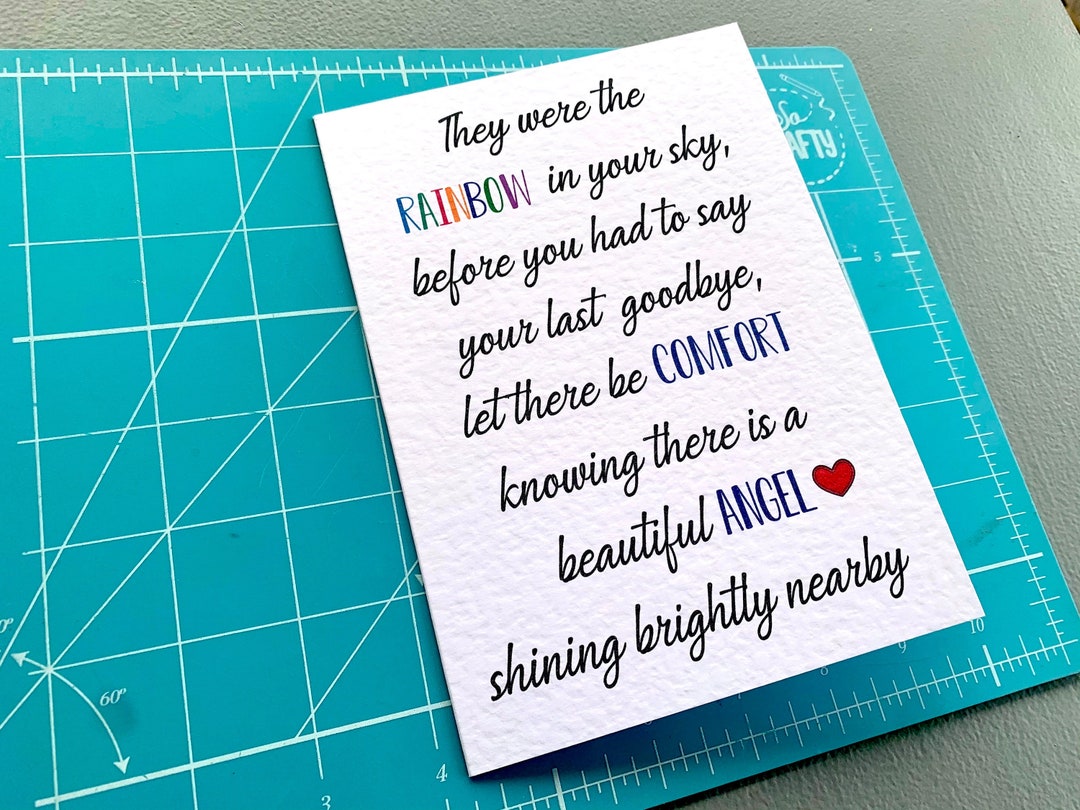 They were the
RAINBOW in your sky,
before you had to say
your last goodbye,
let there be COMFORT
knowing there is a
beautiful ANGEL
shining brightly nearby
So
AFTY
5
10
9
8
4
3
60º